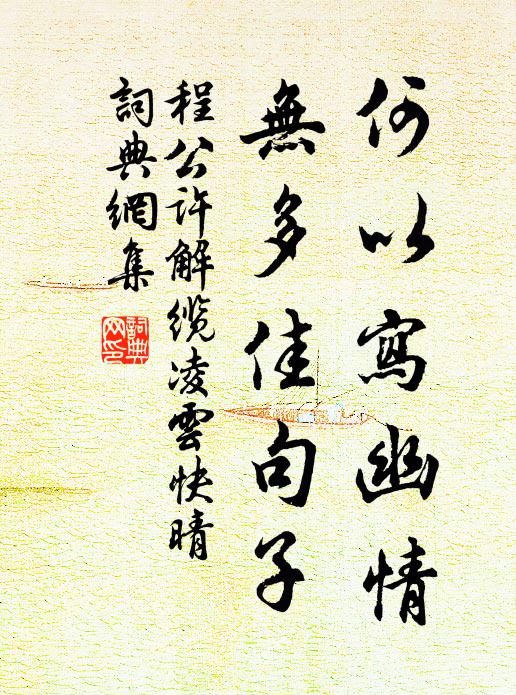 何以寫幽情
無多佳句子
程公許解纜凌雲快晴
詞典網集
詞典网印